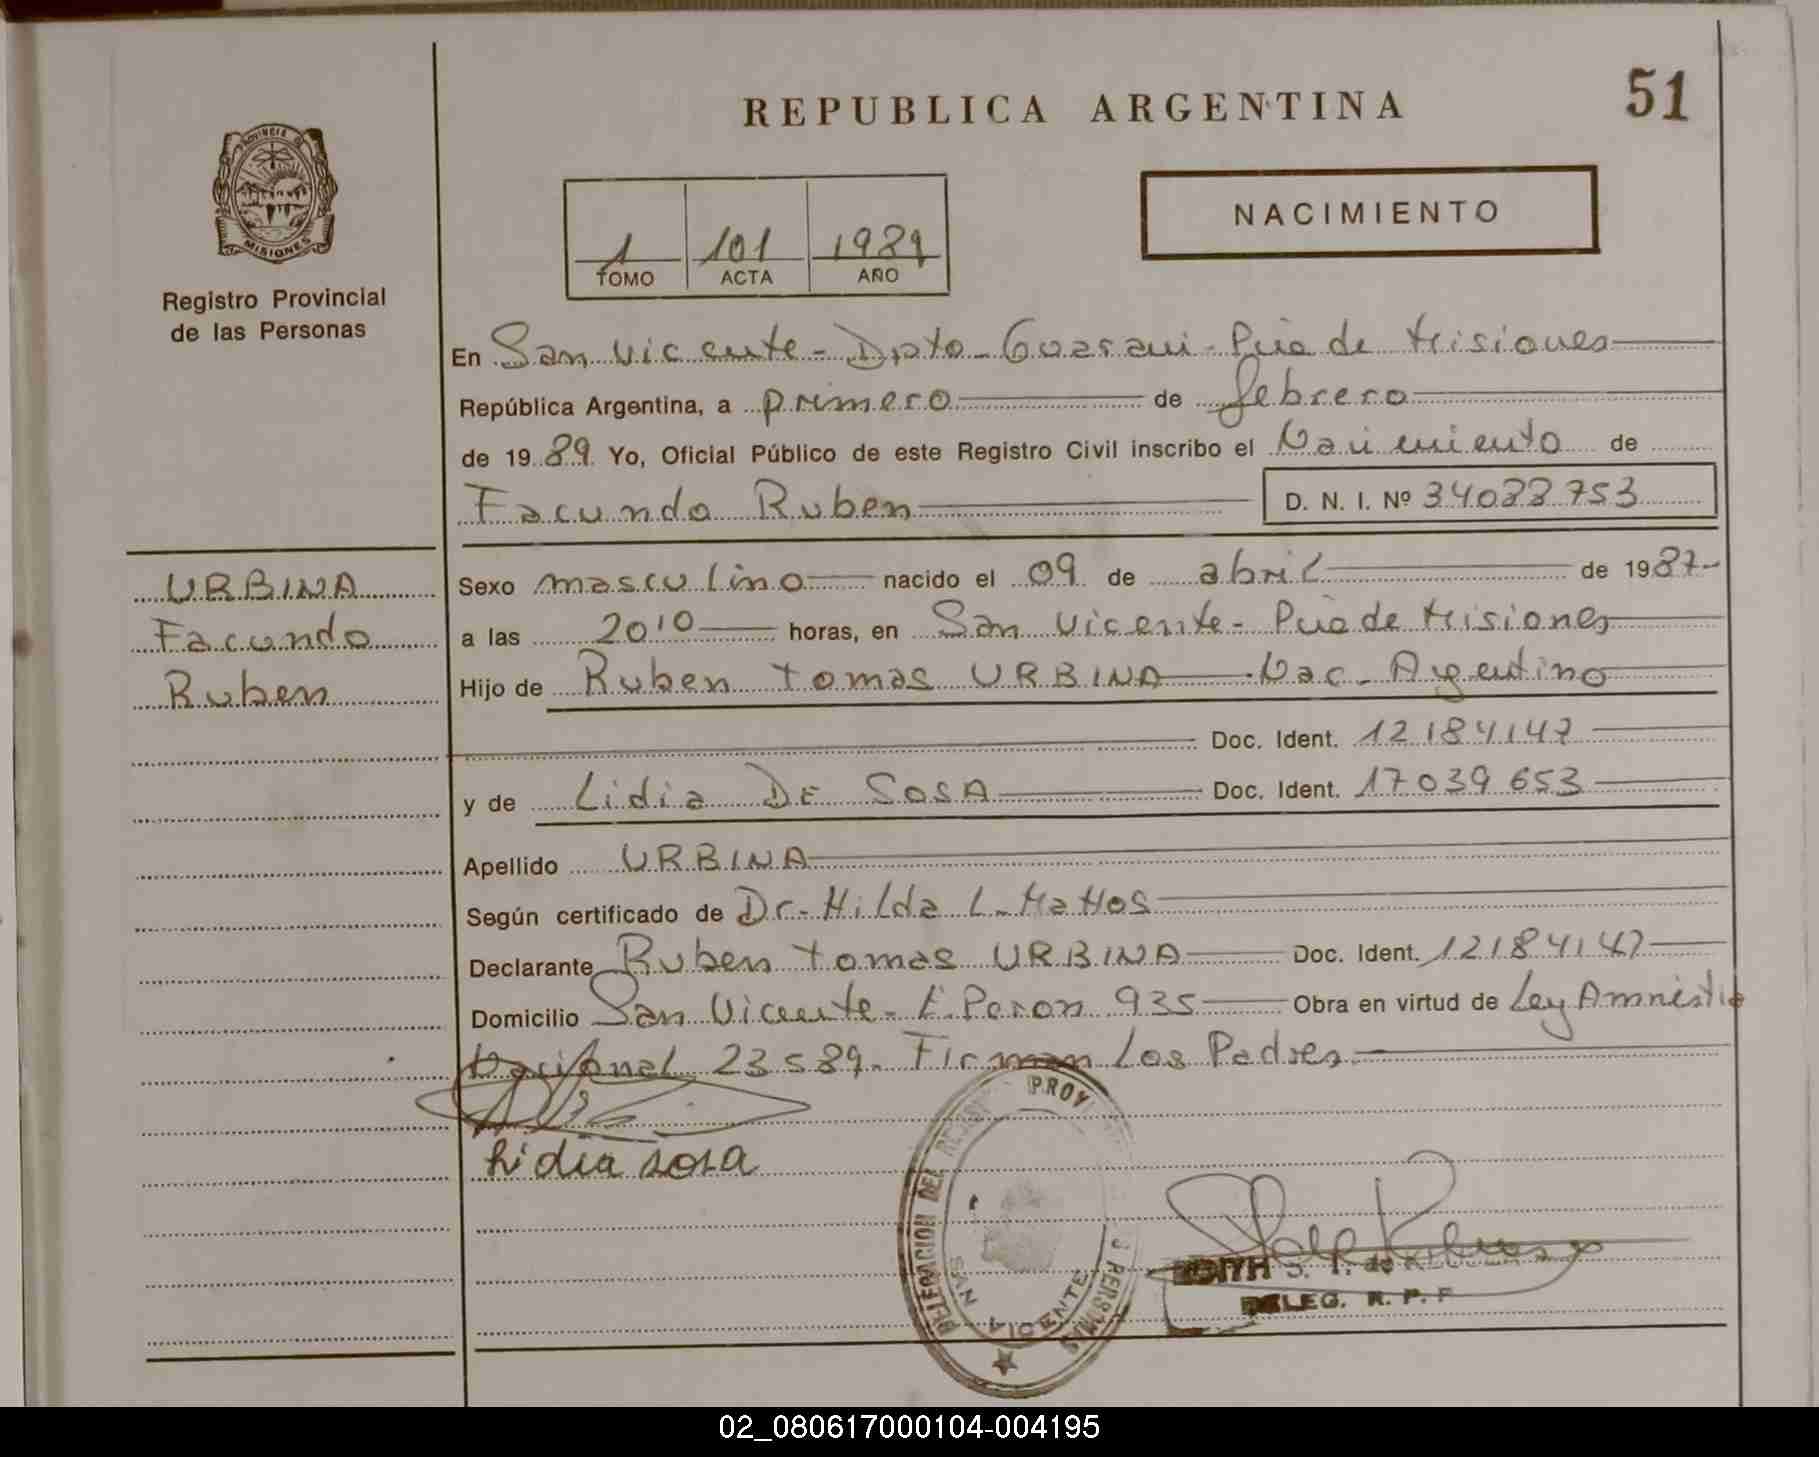 REPUBLICA ARGENTINA
51
PROVINCIA DE
MISIONES
Registro Provincial
de las Personas
1 101 1989
TOMO ACTA AÑO
NACIMIENTO
En San Vicente - Dpto - Guarani - Pcia de Misiones
República Argentina, a primero de febrero
de 1989 Yo, Oficial Público de este Registro Civil inscribo el Nacimiento de
Facundo Ruben D. N. I. Nº 34088753
URBINA
Facundo
Ruben
Sexo masculino nacido el 09 de abril de 1987
a las 20 10 horas, en San Vicente - Pcia de Misiones
Hijo de Ruben Tomas URBINA Nac. Argentino
Doc. Ident. 12184147
y de Lidia DE SOSA Doc. Ident. 17039653
Apellido URBINA
Según certificado de Dr. Hilda L. Mattos
Declarante Ruben Tomas URBINA Doc. Ident. 12184147
Domicilio San Vicente - E. Peron 935 Obra en virtud de Ley Amnistia
Nacional 23589. Firman Los Padres
Lidia sosa
DELEGACION DEL PROV PERSONAS
SAN VICENTE
EDITH S. de
DELEG. R. P. P
02_080617000104-004195